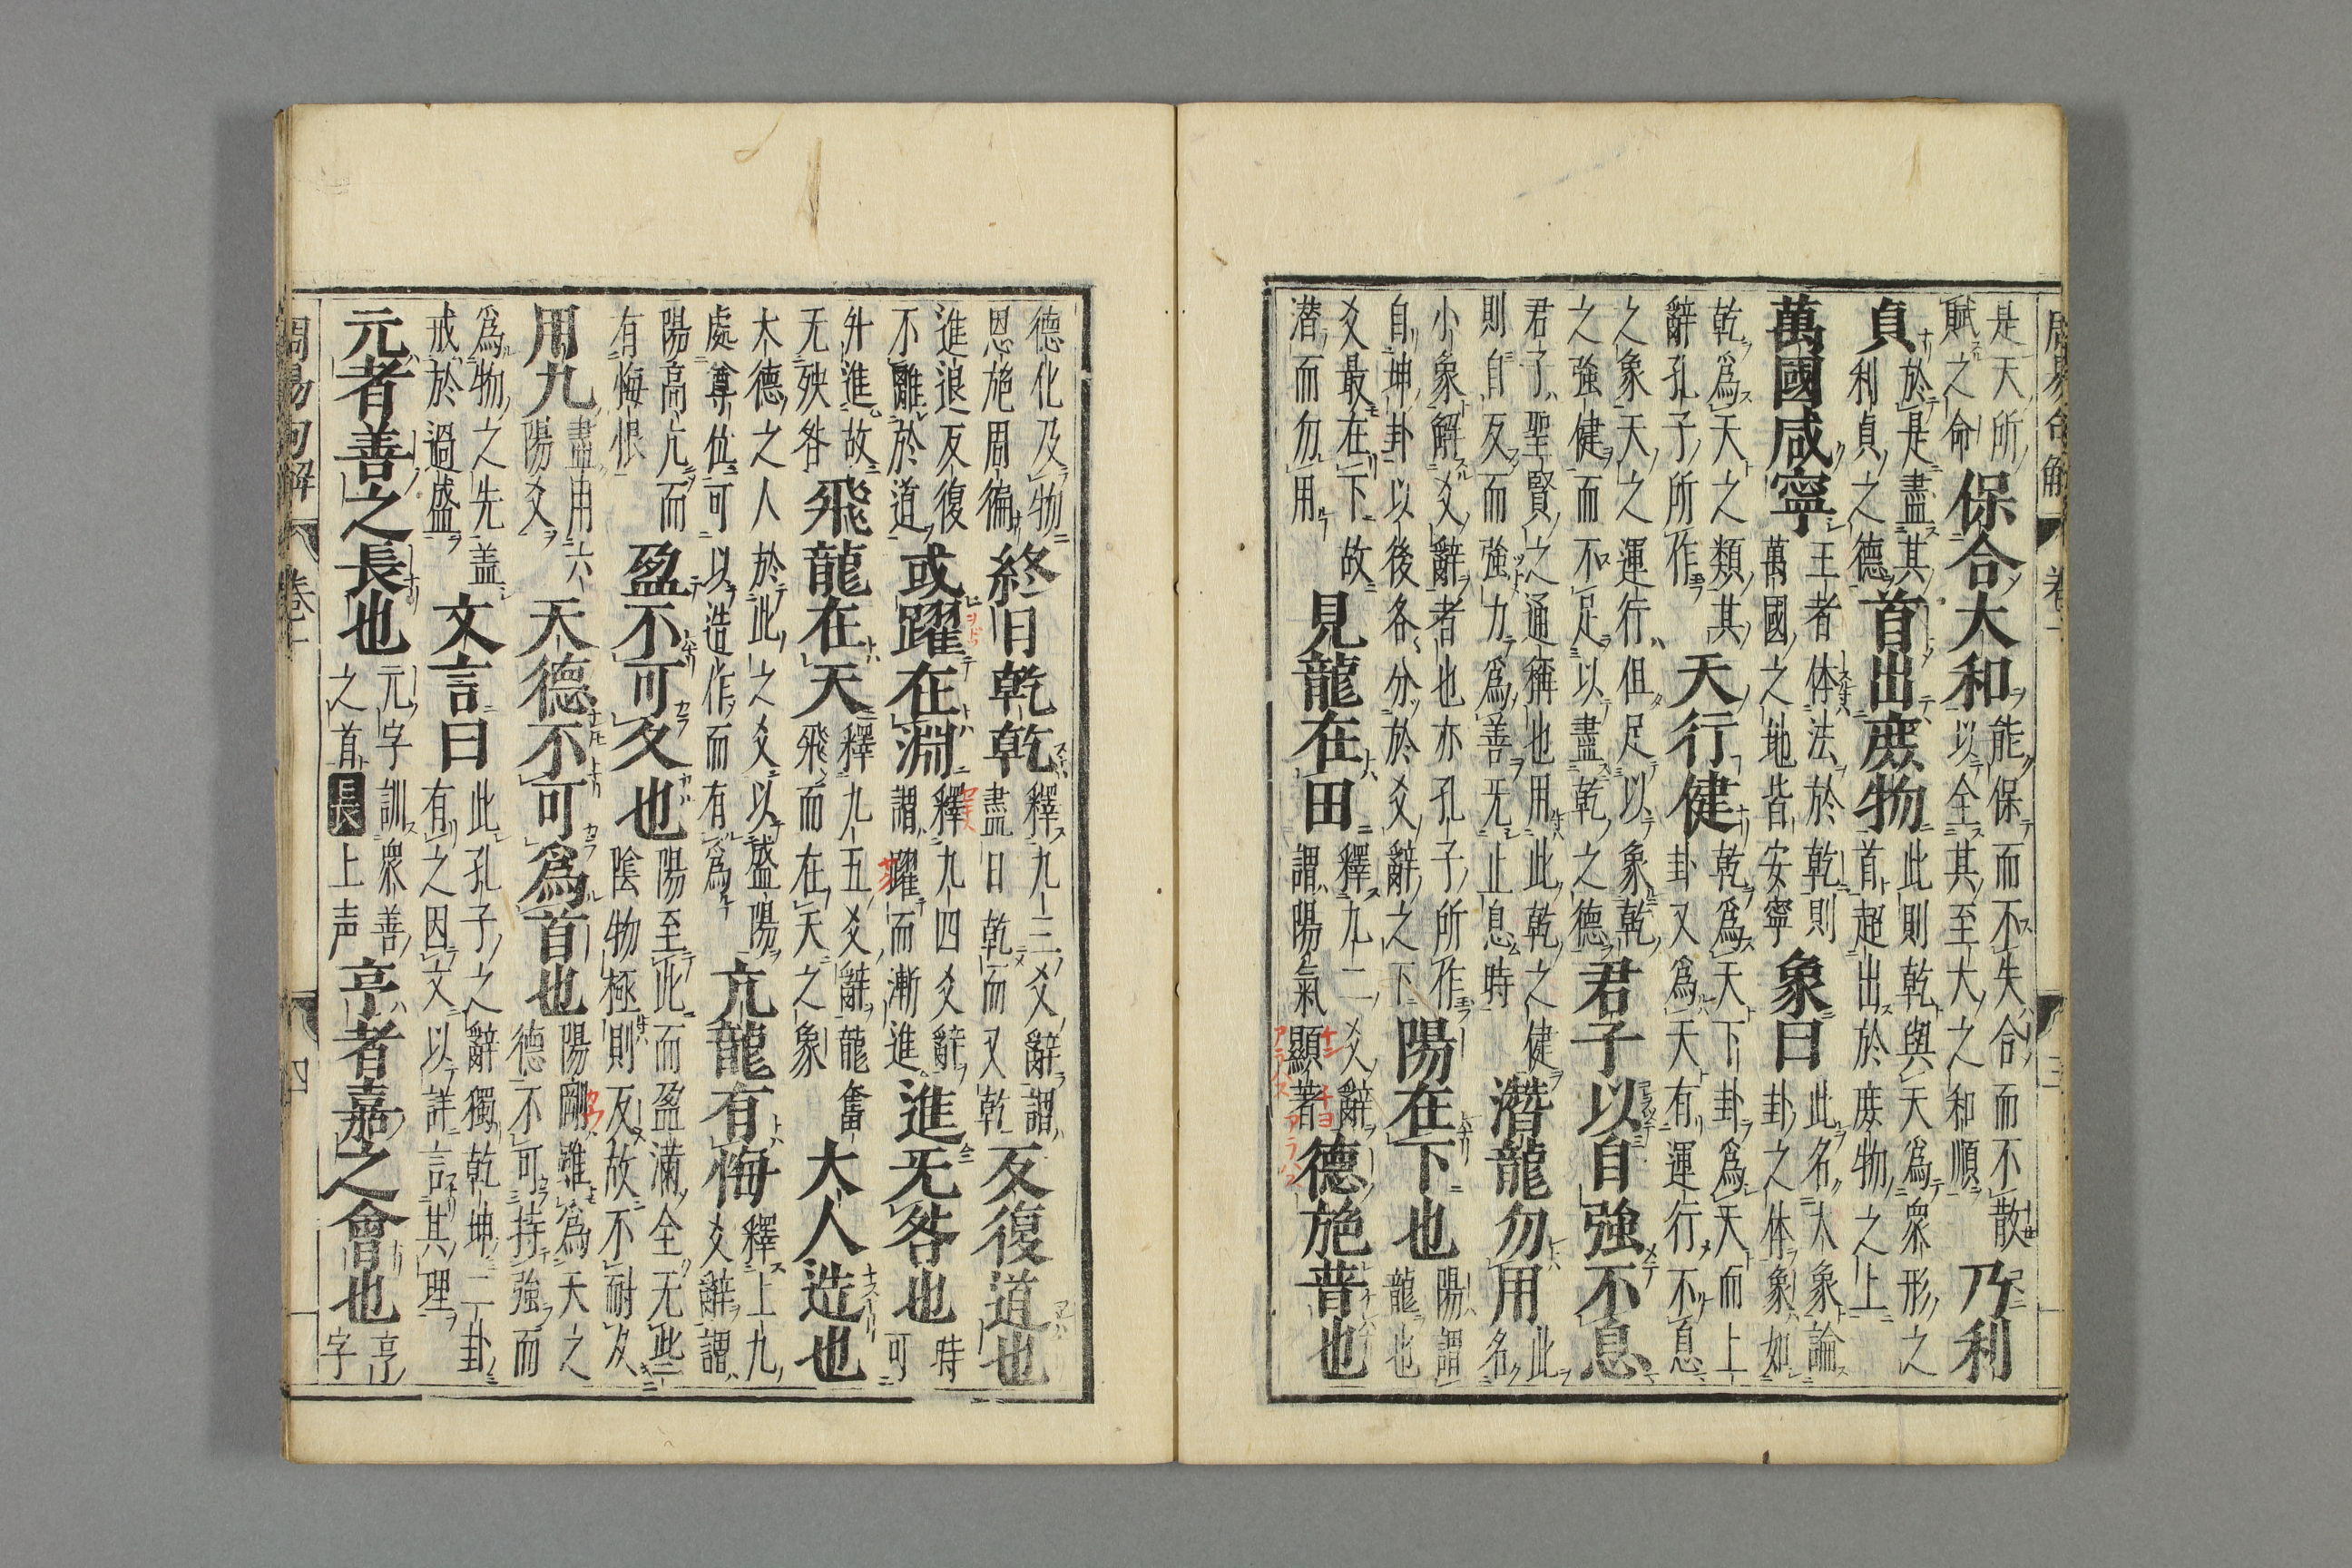 周易句解 卷一 三
是天所賦之命保合大和能保而不失合而不散以全其至大之和順乃利
貞於是盡其利貞之德首出庶物此則乾與天為衆形之首超出於庶物之上
萬國咸寧王者体法於乾則萬國之地皆安寧象曰此名大象論卦之体象如
乾為天之類其辭孔子所作天行健乾為天下卦為天而上卦又為天有運行不息
之象天之運行但足以象乾之強健而不足以盡乾之德君子以自強不息
君子聖賢之通稱也用此乾之健則自反而強力為善无止息時潛龍勿用此名
小象解爻辭者也亦孔子所作自坤卦以後各分於爻辭之下陽在下也陽謂龍也
爻最在下故潜而勿用見龍在田釋九二爻辭謂陽氣顯著德施普也
德化及物恩施周徧終日乾乾釋九三爻辭謂盡日乾而又乾反復道也
進退反復不離於道或躍在淵釋九四爻辭謂躍而漸進進无咎也時可
升進故无殃咎飛龍在天釋九五爻辭龍奮飛而在天之象大人造也
大德之人於此之爻以盛陽處尊位可以造作而有為亢龍有悔釋上九爻辭謂
陽高亢而有悔恨盈不可久也陽至此而盈滿全无些陰物極則反故不耐久
用九盡用六陽爻天德不可為首也陽剛雖為天之德不可持強而
為物之先盖戒於過盛文言曰此孔子之辭獨乾坤二卦有之因文以詳言其理
元者善之長也元字訓衆善之首長上声亨者嘉之會也亨字
周易句解 卷一 四